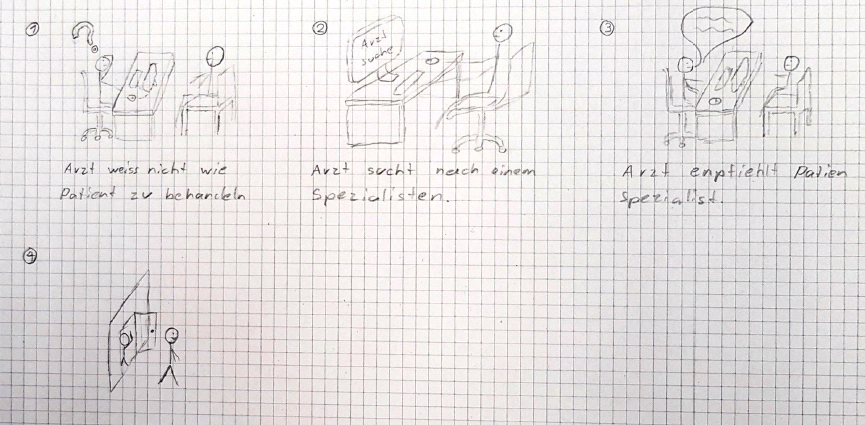 ①
?
Arzt weiss nicht wie
Patient zu behandeln
②
Arzt
suche
Arzt sucht nach einem
Spezialisten.
③
Arzt enpfiehlt Patien
spezialist.
④